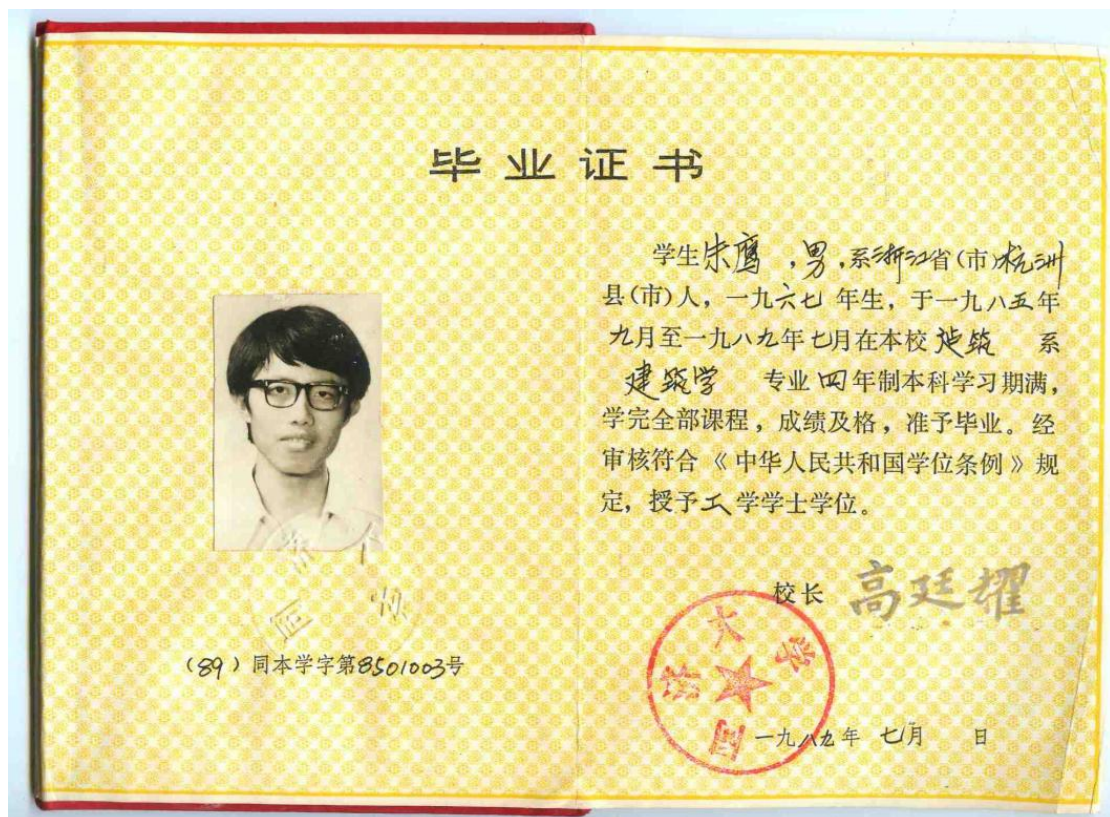 毕业证书
学生朱鹰，男，系浙江省(市)杭州
县(市)人，一九六七年生，于一九八五年
九月至一九八九年七月在本校建筑 系
建筑学 专业四年制本科学习期满，
学完全部课程，成绩及格，准予毕业。经
审核符合《中华人民共和国学位条例》规
定，授予工学学士学位。
校长 高廷耀
同济大学
一九八九年 七月 日
（89）同本学字第8501003号